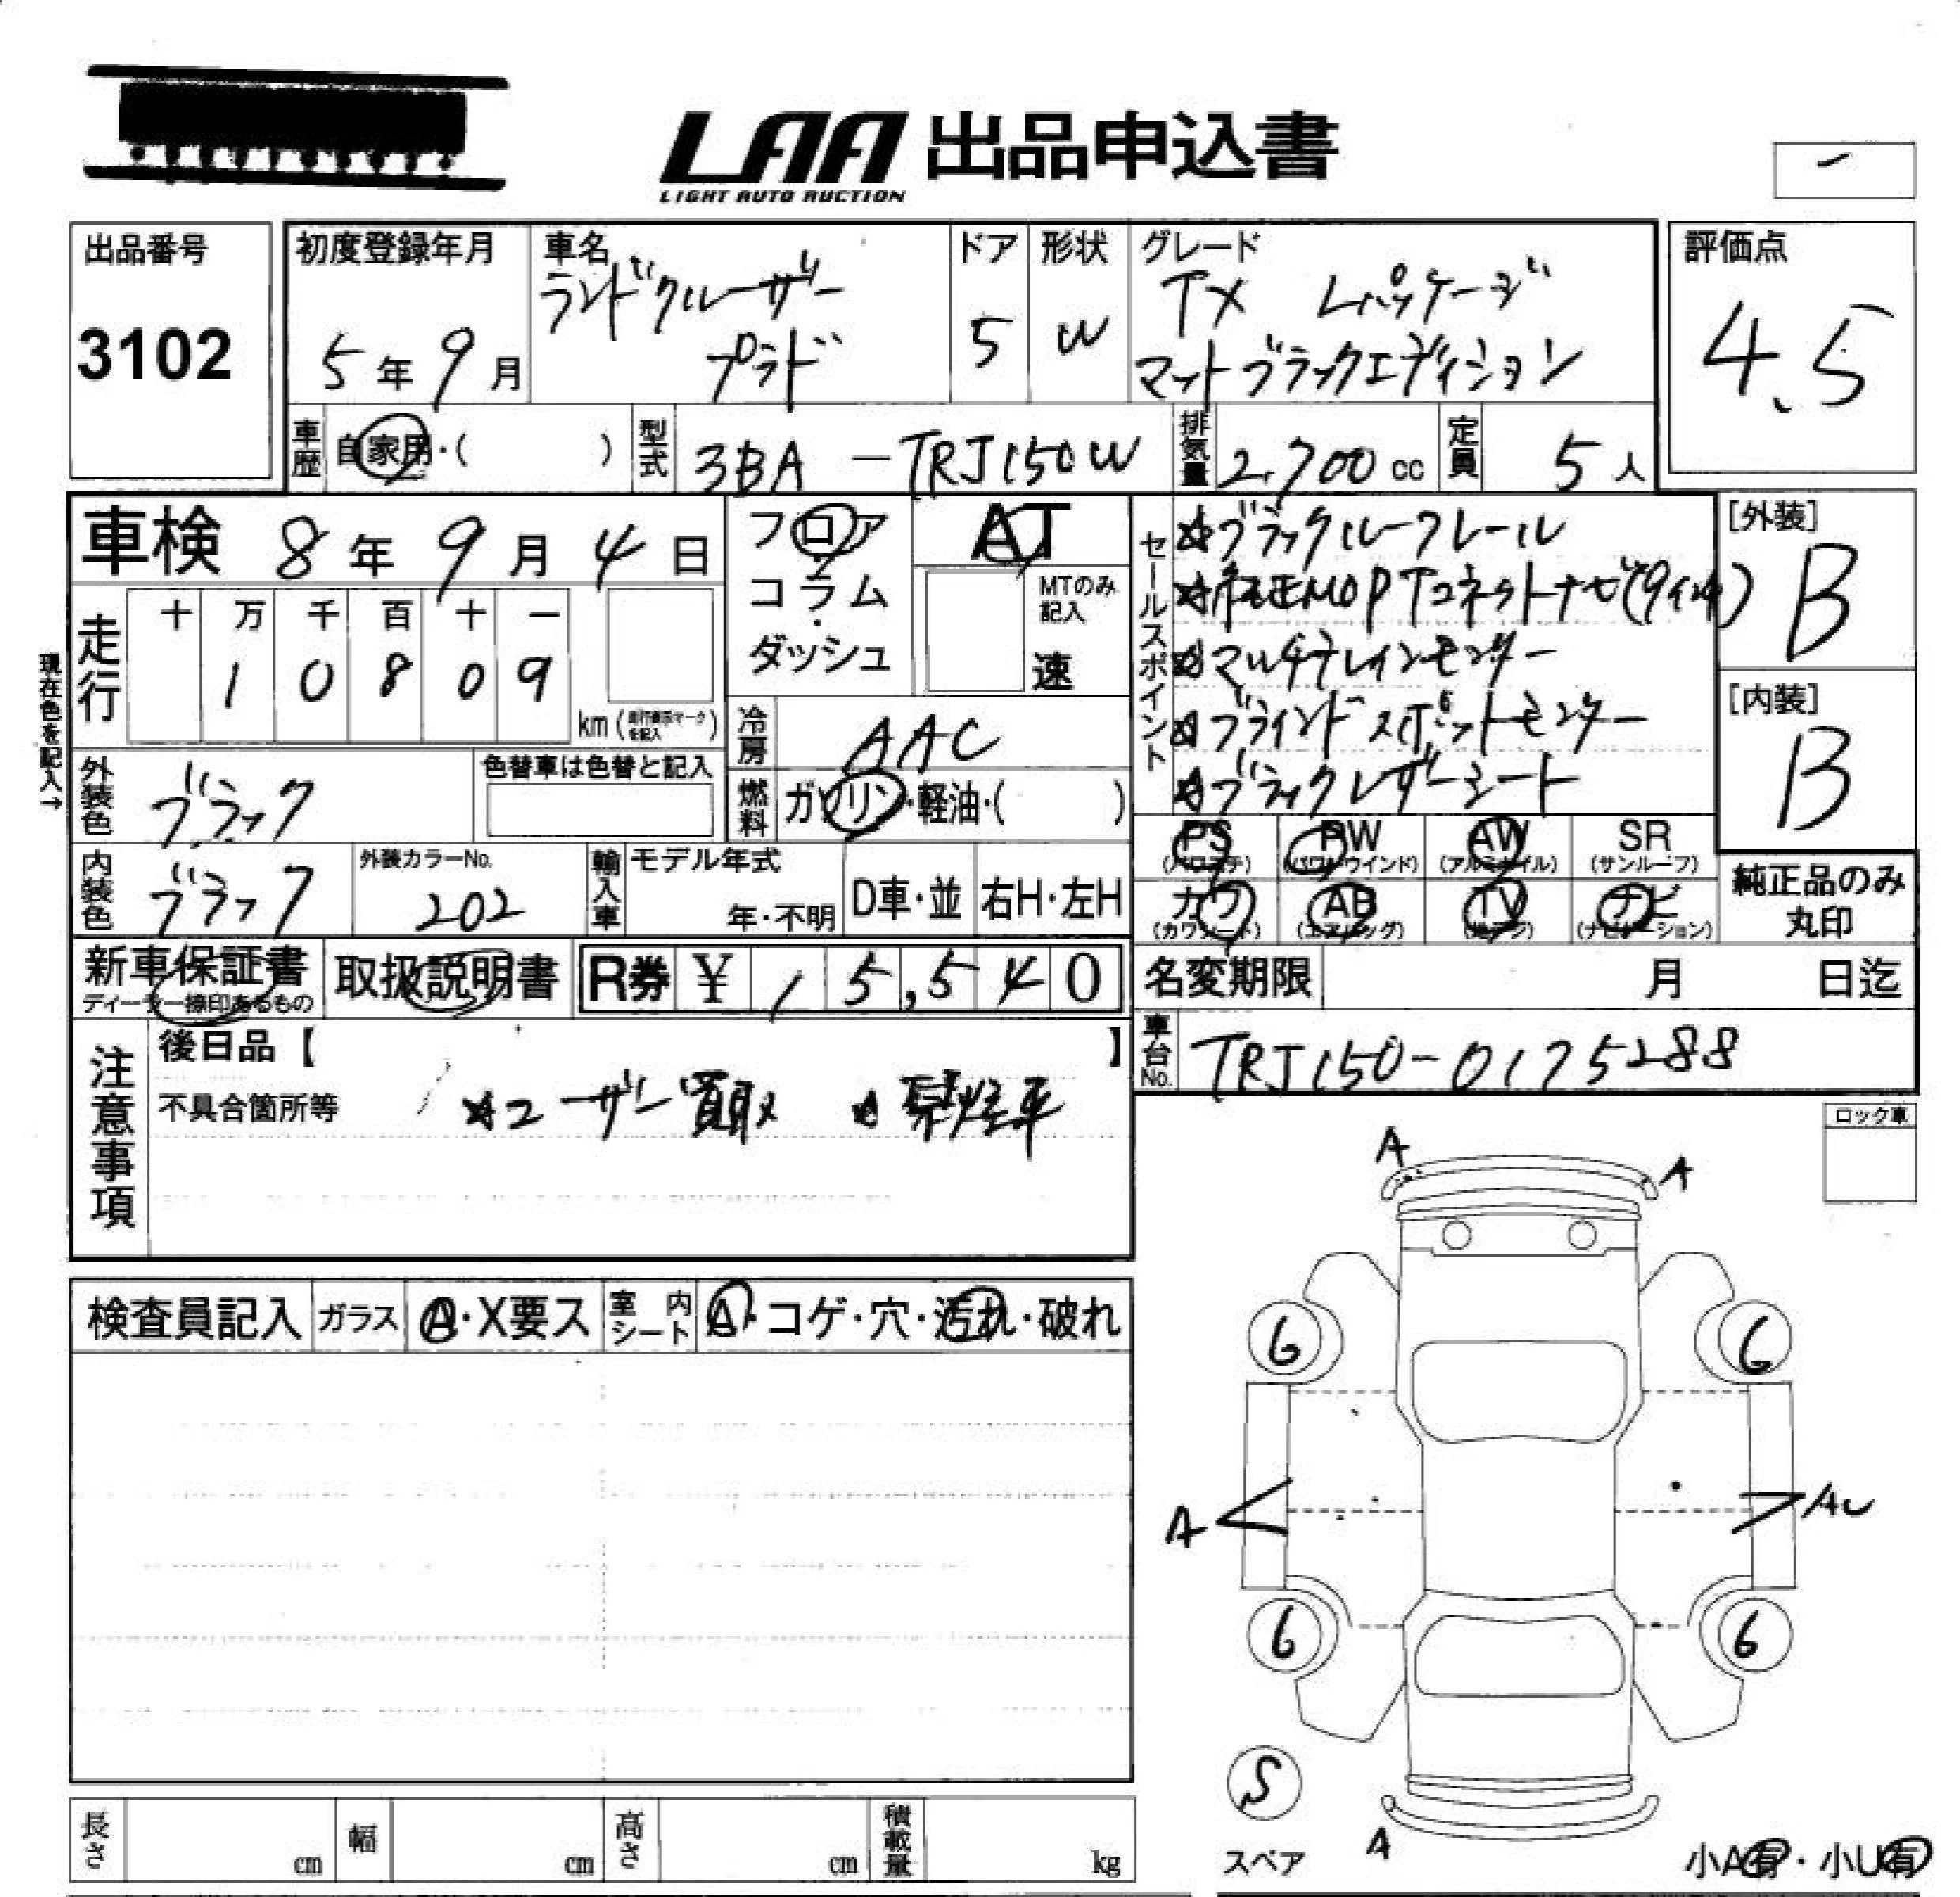 LAA 出品申込書
LIGHT AUTO AUCTION
出品番号
3102
初度登録年月
5年9月
車名
ランドクルーザー
プラド
ドア
5
形状
W
グレード
TX Lパッケージ
マットブラックエディション
評価点
4.5
車歴 自家用・( )
型式 3BA-TRJ150W
排気量 2,700 cc
定員 5人
車検 8年9月4日
フロア
コラム
ダッシュ
AT
MTのみ
記入
速
セールスポイント
☆ブラックルーフレール
☆純正MOP Tコネクトナビ(9インチ)
☆マルチテレインモニター
☆ブラインドスポットモニター
☆ブラックレザーシート
[外装]
B
[内装]
B
現在色を記入→
走行
十 万 千 百 十 一
1 0 8 0 9
km
冷房 AAC
外装色 ブラック
色替車は色替と記入
燃料 ガソリン・軽油・( )
PS PW AW SR
(パワステ) (パワーウインド) (アルミホイル) (サンルーフ)
カワ AB TV ナビ
(カワシート) (エアバッグ) (地デジ) (ナビゲーション)
純正品のみ
丸印
内装色 ブラック
外装カラーNo.
202
輸入車
モデル年式
年・不明
D車・並
右H・左H
新車保証書
ディーラー捺印あるもの
取扱説明書
R券 ¥ 15,540
名変期限 月 日迄
車台No. TRJ150-0175288
注意事項
後日品【 】
不具合箇所等
☆ユーザー買取 ☆禁煙車
ロック車
検査員記入
ガラス A・X要ス
室内シート A・コゲ・穴・汚れ・破れ
A A
6 6
A AU
6 6
S
スペア
A
小A有・小U有
長さ cm
幅 cm
高さ cm
積載量 kg